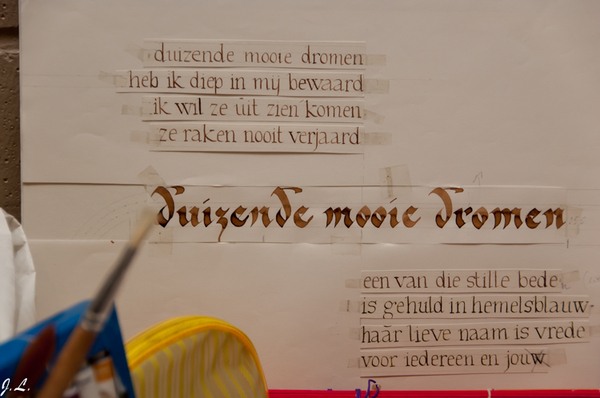 duizende mooie dromen
heb ik diep in mij bewaard
ik wil ze uit zien komen
ze raken nooit verjaard
duizende mooie dromen
een van die stille bede
is gehuld in hemelsblauw
haar lieve naam is vrede
voor iedereen en jouw
J.L.